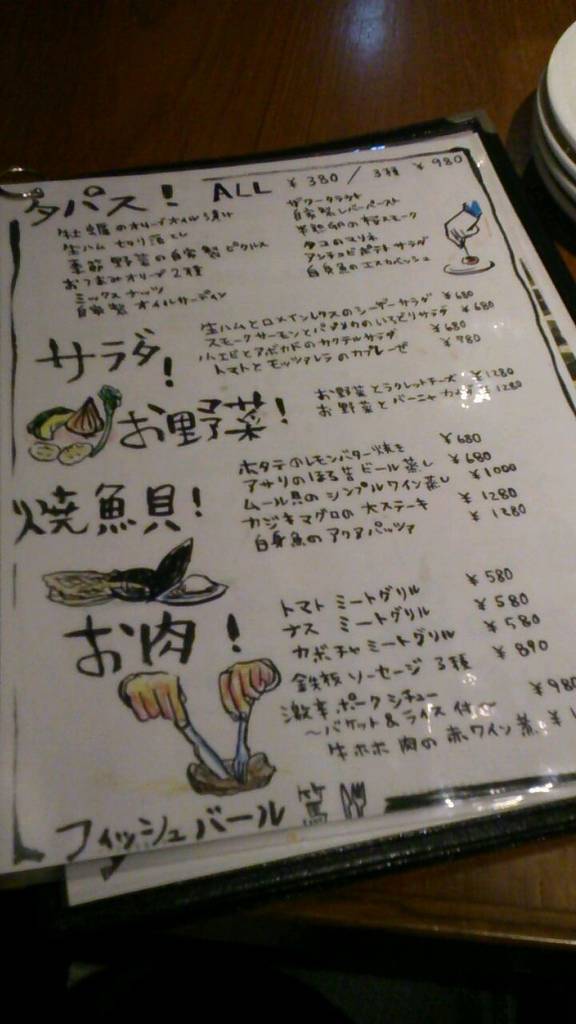 タパス! ALL ¥380 / 3種 ¥980
牡蠣のオリーブオイル漬け
生ハム切り落とし
季節野菜の自家製ピクルス
おつまみオリーブ2種
ミックスナッツ
自家製オイルサーディン
ザワークラウト
自家製レバーペースト
半熟卵の桜スモーク
タコのマリネ
アンチョビポテトサラダ
白身魚のエスカベッシュ
サラダ!
生ハムとロメインレタスのシーザーサラダ ¥680
スモークサーモンと のいろどりサラダ ¥680
小エビとアボカドのカクテルサラダ ¥680
トマトとモッツァレラのカプレーゼ ¥780
お野菜!
お野菜とラクレットチーズ ¥1280
お野菜とバーニャカウダ ¥1280
焼魚貝!
ホタテのレモンバター焼き ¥680
アサリのほろ苦ビール蒸し ¥680
ムール貝のシンプルワイン蒸し ¥1000
カジキマグロの大ステーキ ¥1280
白身魚のアクアパッツァ ¥1280
お肉!
トマトミートグリル ¥580
ナスミートグリル ¥580
カボチャミートグリル ¥580
鉄板ソーセージ3種 ¥890
激辛ポークシチュー
~バケット&ライス付~ ¥980
牛ホホ肉の赤ワイン煮 ¥1
フィッシュバール